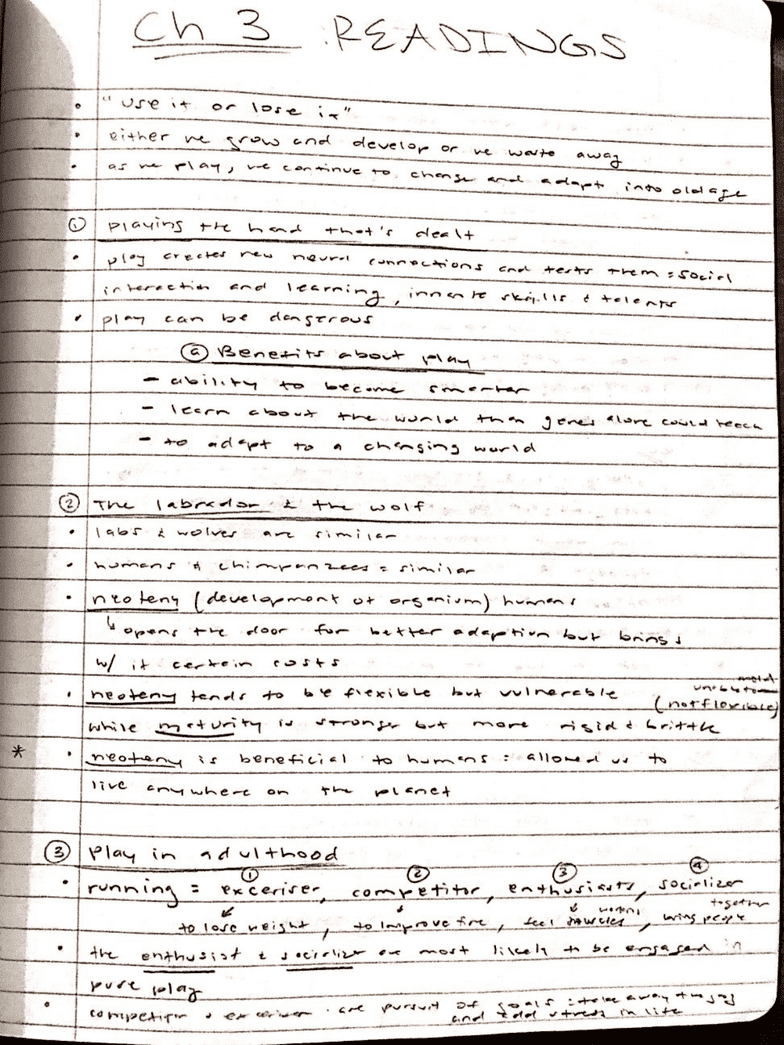 Ch 3 READINGS
• "use it or lose it"
• either we grow and develop or we waste away
• as we play, we continue to change and adapt into old age
① playing the hand that's dealt
• play creates new neural connections and tests them = social
interaction and learning, innate skills & talents
• play can be dangerous
ⓐ Benefits about play
- ability to become smarter
- learn about the world than genes alone could teach
- to adapt to a changing world
② The labrador & the wolf
• labs & wolves are similar
• humans & chimpanzees = similar
• neoteny (development of organism) humans
↳ opens the door for better adaption but brings
w/ it certain costs
• neoteny tends to be flexible but vulnerable
(not flexible)
while maturity is stronger but more rigid & brittle
* • neoteny is beneficial to humans : allowed us to
live anywhere on the planet
③ Play in adulthood
① ② ③ ④
• running = exceriser, competitor, enthusiasts, socializer
to lose weight, to improve time, feel muscles working, bring people together
• the enthusist & socializer are most likely to be engaged in
pure play
• competitor & exceriser are pursuit of goals : take away the joy
and add stress in life